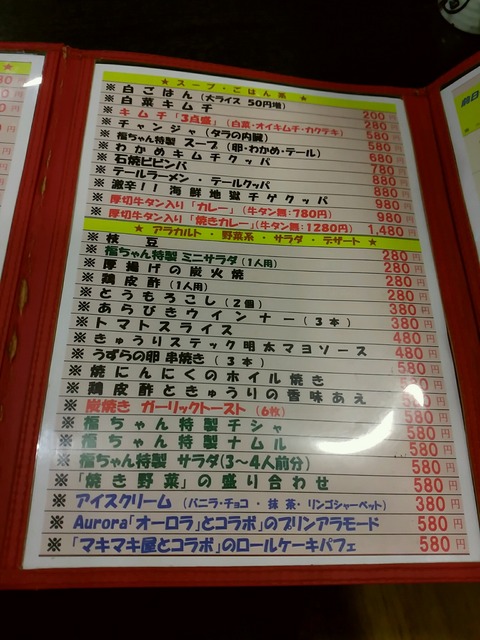 ★ スープ・ごはん系 ★
※ 白ごはん (大ライス 50円増) 200円
※ 白菜キムチ 280円
※ キムチ「3点盛」(白菜・オイキムチ・カクテキ) 580円
※ チャンジャ (タラの内臓) 580円
※ 福ちゃん特製 スープ (卵・わかめ・テール) 580円
※ わかめキムチクッパ 680円
※ 石焼ビビンバ 780円
※ テールラーメン・テールクッパ 880円
※ 激辛!! 海鮮地獄チゲクッパ 880円
※ 厚切牛タン入り「カレー」(牛タン無:780円) 980円
※ 厚切牛タン入り「焼きカレー」(牛タン無:1280円) 1,480円
★ アラカルト・野菜系・サラダ・デザート ★
※ 枝豆 280円
※ 福ちゃん特製 ミニサラダ (1人用) 280円
※ 厚揚げの炭火焼 280円
※ 鶏皮酢 (1人用) 280円
※ とうもろこし (2個) 280円
※ あらびきウインナー (3本) 380円
※ トマトスライス 380円
※ きゅうりスティック明太マヨソース 480円
※ うずらの卵 串焼き (3本) 480円
※ 焼にんにくのホイル焼き 580円
※ 鶏皮酢ときゅうりの香味あえ 580円
※ 炭焼き ガーリックトースト (6枚) 580円
※ 福ちゃん特製チシャ 580円
※ 福ちゃん特製ナムル 580円
※ 福ちゃん特製 サラダ(3～4人前分) 580円
※「焼き野菜」の盛り合わせ 580円
※ アイスクリーム (バニラ・チョコ・抹茶・リンゴシャーベット) 380円
※ Aurora「オーロラ」とコラボ」のプリンアラモード 580円
※「マキマキ屋とコラボ」のロールケーキパフェ 580円